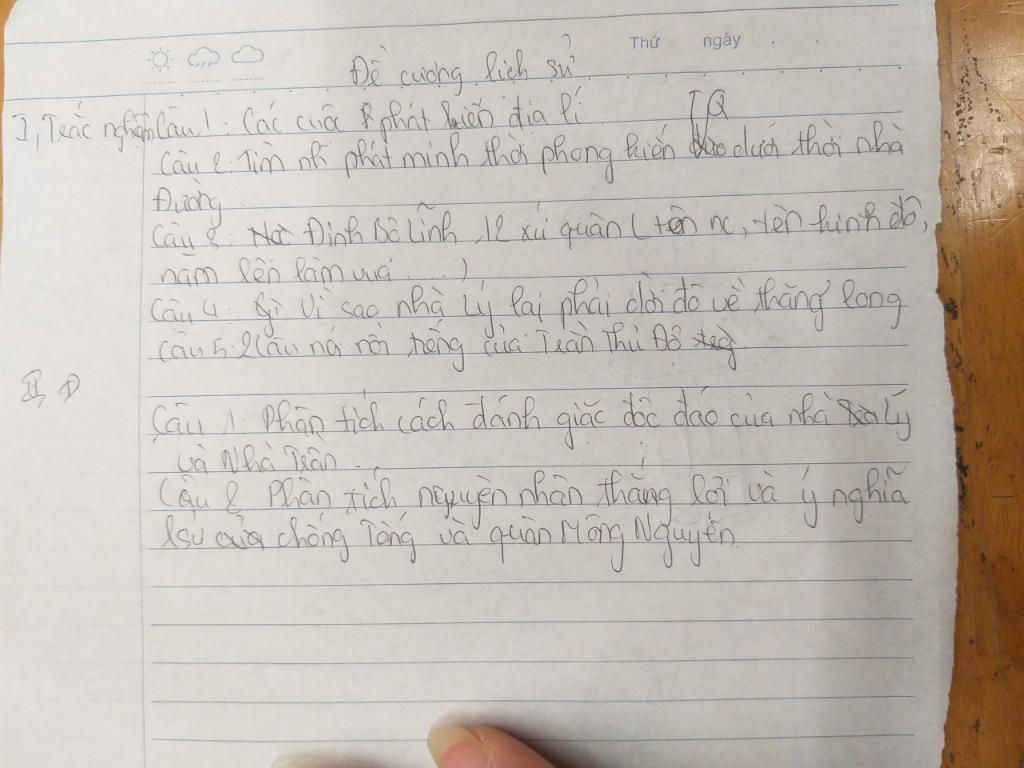 Thứ ngày
Đề cương lịch sử
I, Trắc nghiệm Câu 1: Các cuộc phát kiến địa lí
TQ
Câu 2. Tìm nh~ phát minh thời phong kiến dưới thời nhà
Đường
Câu 3: Đinh Bộ Lĩnh, 12 xứ quân (tên nc, tên kinh đô,
năm lên làm vua ....)
Câu 4: Vì sao nhà Lý lại phải dời đô về thăng long
Câu 5. 2 câu nói nổi tiếng của Trần Thủ Độ
II,
Câu 1. Phân tích cách đánh giặc độc đáo của nhà Lý
và Nhà Trần.
Câu 2. Phân tích nguyên nhân thắng lợi và ý nghĩa
lsử của chống Tống và quân Mông Nguyên.